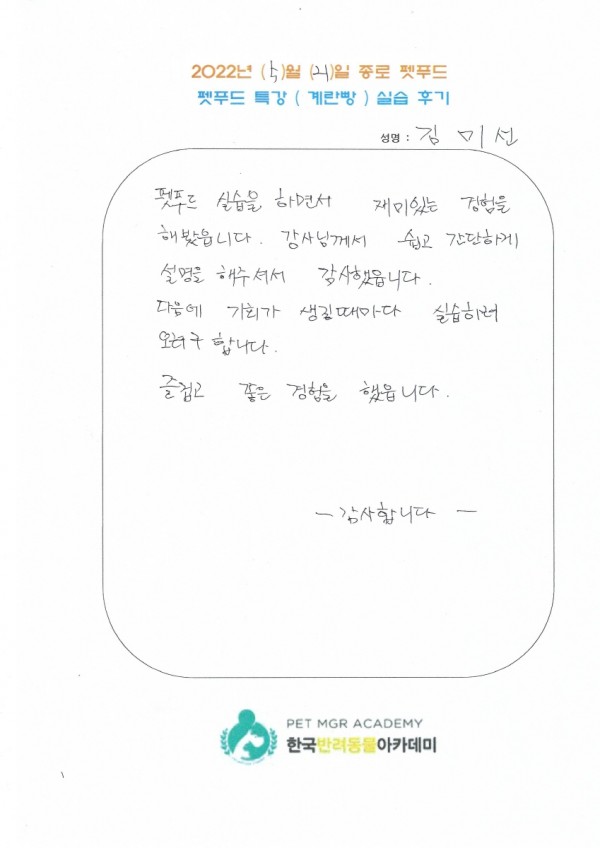 2022년 (5)월 (21)일 종로 펫푸드
펫푸드 특강 ( 계란빵 ) 실습 후기
성명 : 김 미 선
펫푸드 실습을 하면서 재미있는 경험을
해봤읍니다. 강사님께서 쉽고 간단하게
설명을 해주셔서 감사했읍니다.
다음에 기회가 생길때마다 실습하러
오려구 합니다.
즐겁고 좋은 경험을 했읍니다.
- 감사합니다 -
PET MGR ACADEMY
한국반려동물아카데미